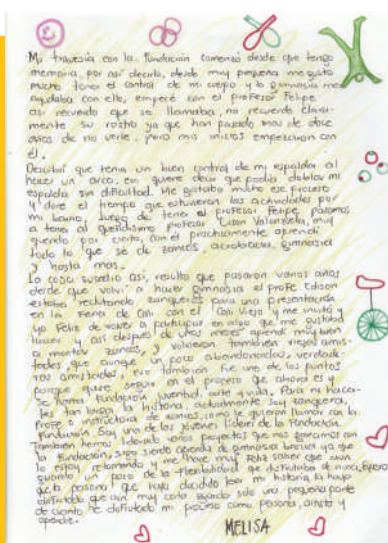 Mi travesía con la fundación comenzó desde que tengo
memoria, por así decirlo, desde muy pequeña me gusto
mucho tener el control de mi cuerpo y la gimnasia me
ayudaba con ello, empecé con el profesor Felipe
así recuerdo que se llamaba, no recuerdo clara-
mente su rostro ya que han pasado mas de doce
años de no verle, pero mis inicios empezaron con
él.
Descubrí que tenía un bien control de mi espalda al
hacer un arco, eso quiere decir que podía doblar mi
espalda sin dificultad. Me gustaba mucho ese proceso
y dure el tiempo que estuvieron las actividades por
mi barrio, luego de tener al profesor Felipe pasamos
a tener al queridísimo profesor Edison Valenzuela, muy
querido por cierto, con él prácticamente aprendí
todo lo que sé de zancos, acrobacias, gimnasia
y hasta mas.
La cosa sucedió así, resulta que pasaron varios años
desde que volví a hacer gimnasia el profe Edison
estaba reclutando zanqueros para una presentación
en la feria de Cali con el Cali Viejo y me invitó y
yo feliz de volver a participar en algo que me gustaba
hacer y así después de unos meses aprendí muy bien
a montar zancos, y volvieron también viejas amis-
tades, que aunque un poco abandonadas, verdade-
ras amistades, eso también fue uno de los puntos
porque quise seguir en el proceso que ahora es y
se llama fundación juventud, arte y vida. Para no hacer-
les tan larga la historia, actualmente soy zanquera,
profe o instructora de zancos, como le quieran llamar con la
fundación. Soy una de las jóvenes líderes de la fundación.
También hemos liderado varios proyectos que nos ganamos con
la fundación, sigo siendo gimnasia bueno ya que
lo estoy retomando y me hace muy feliz saber que aun
guardo un poco de la flexibilidad que disfrutaba de niña, espero
que la persona que haya decidido leer mi historia, la haya
disfrutado que aún muy corta guarda solo una pequeña parte
de cuanto he disfrutado mi proceso como persona, artista y
aprendiz.
MELISA